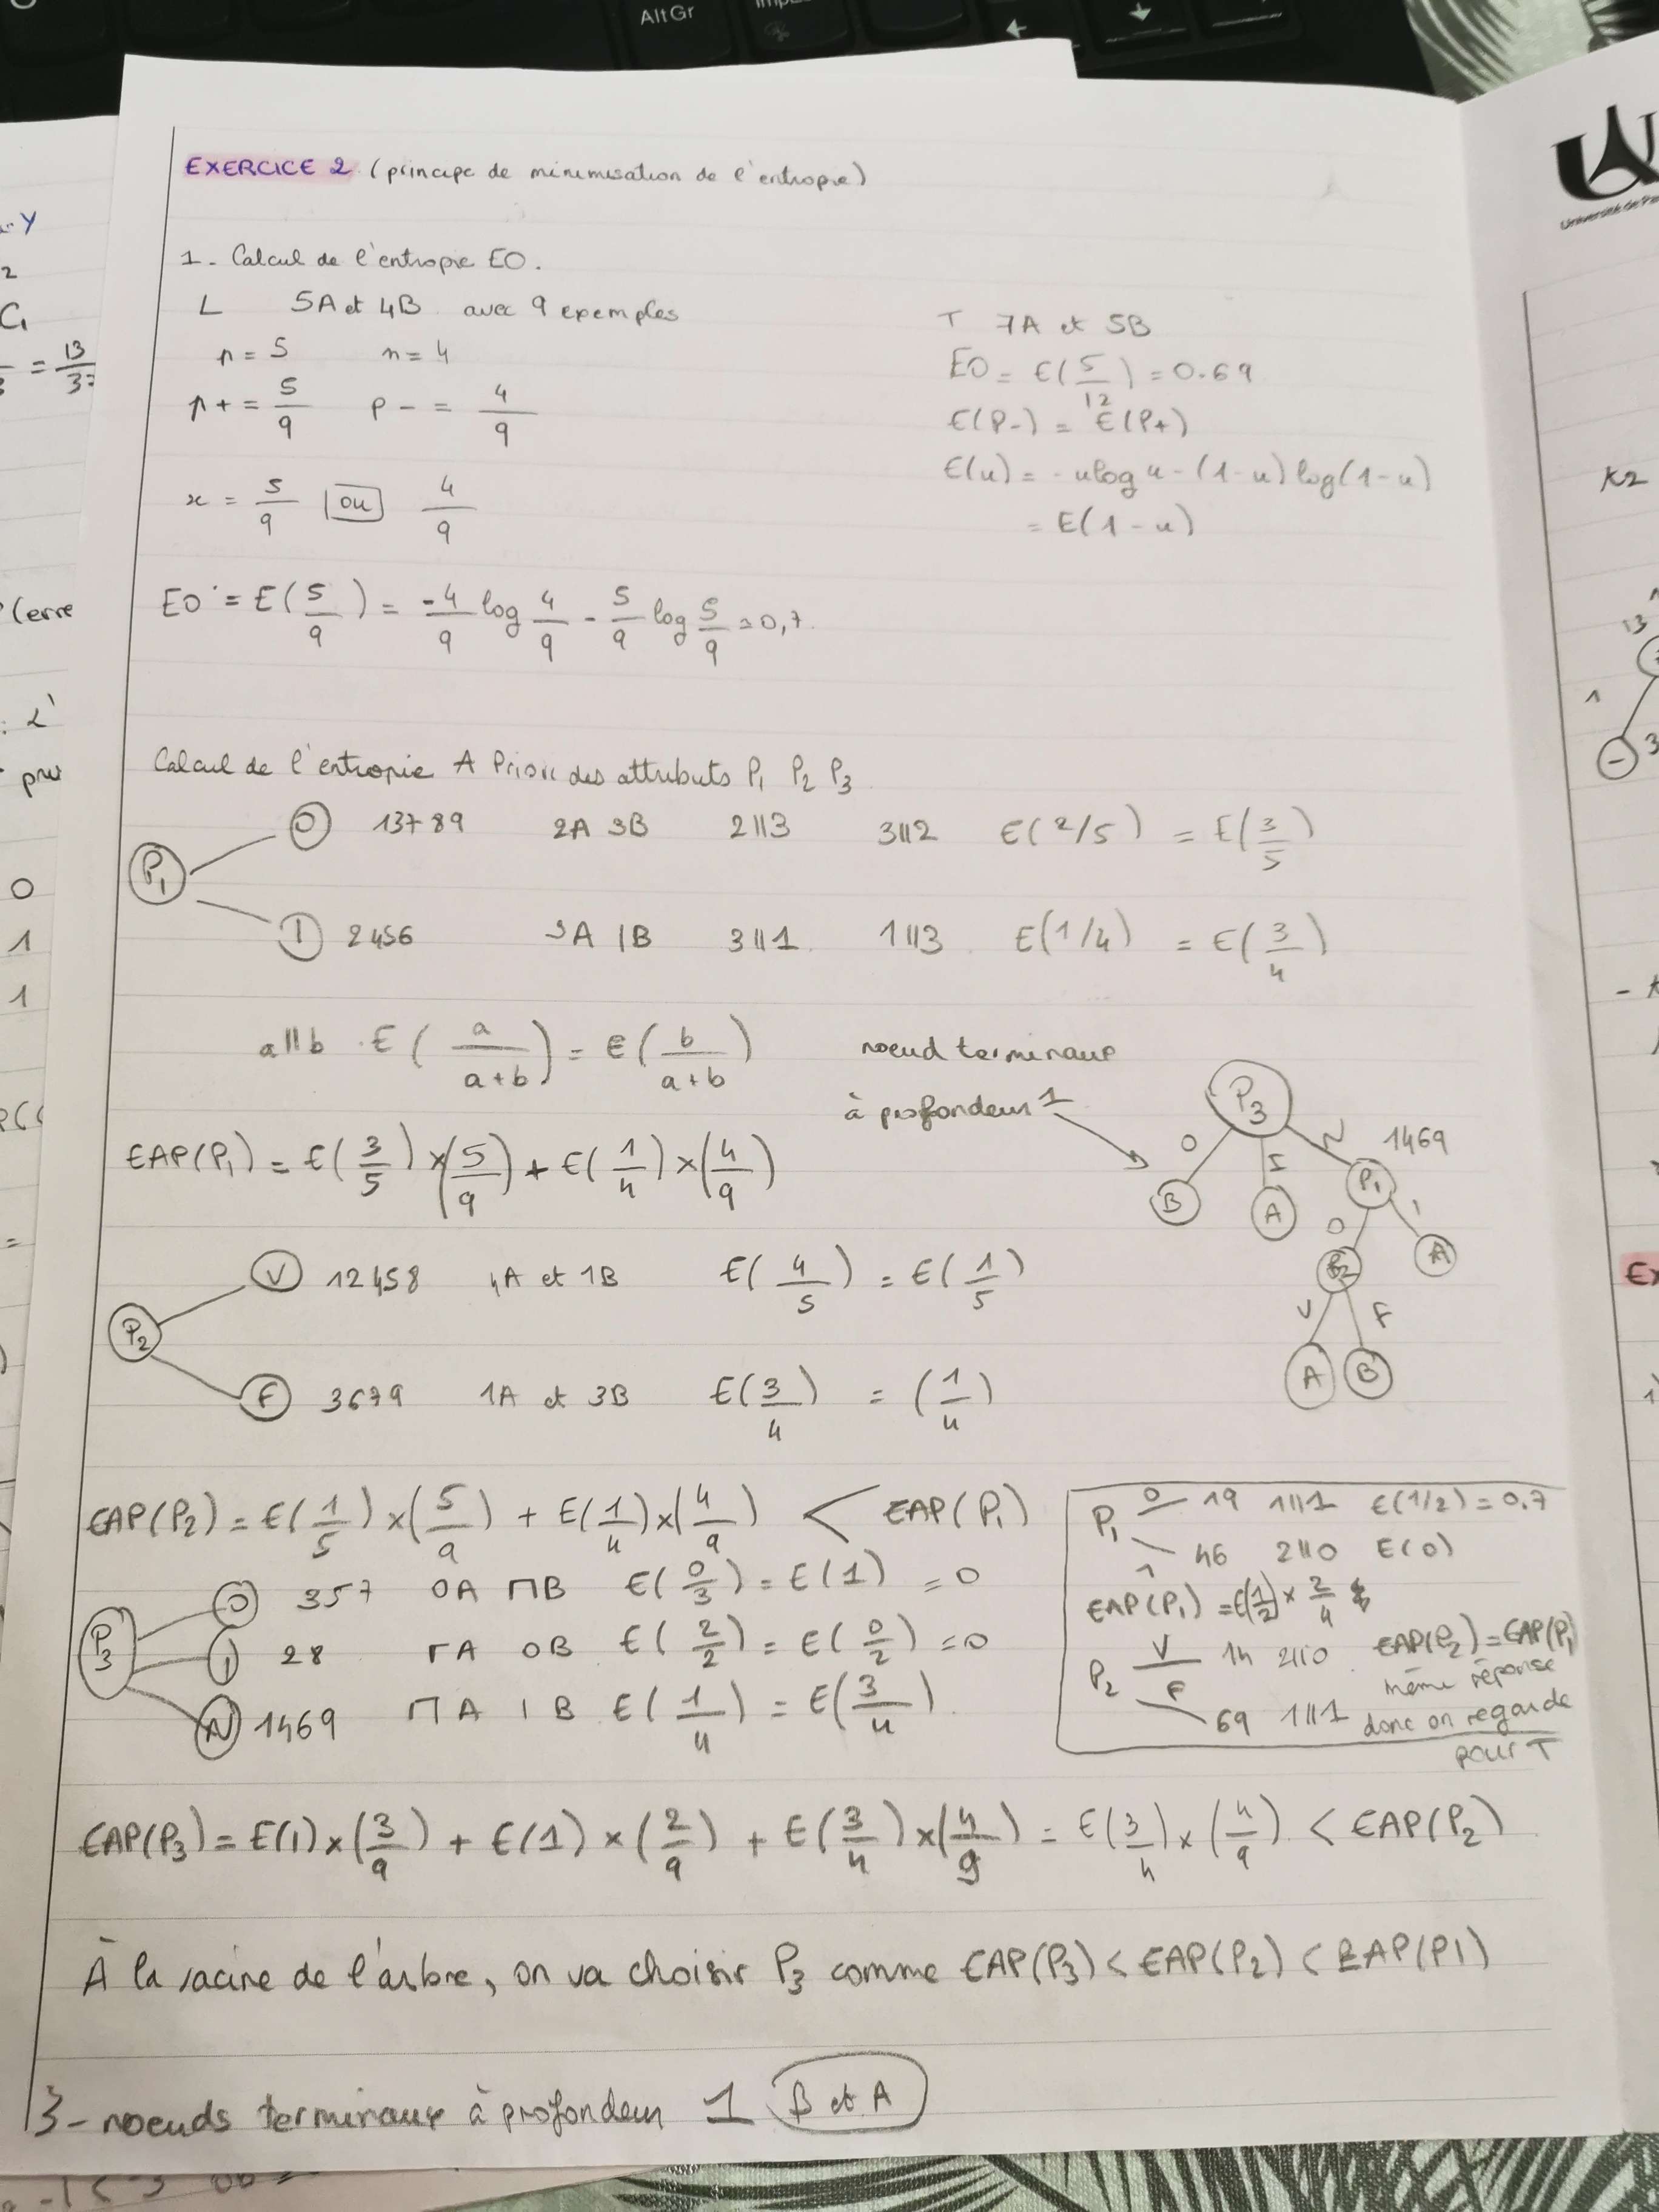 AltGr
EXERCICE 2 (principe de minimisation de l'entropie)
1- Calcul de l'entropie E0.
L 5A et 4B avec 9 exemples
p = 5 n = 4
p+ = 5/9 P- = 4/9
x = 5/9 ou 4/9
E0 = E(5/9) = -4/9 log 4/9 - 5/9 log 5/9 = 0,7.
T 7A et 5B
E0 = E(5/12) = 0.69
E(P-) = E(P+)
E(u) = -u log u - (1-u) log(1-u)
= E(1-u)
Calcul de l'entropie A Priori des attributs P1 P2 P3
P1
0 13789 2A 3B 2||3 3||2 E(2/5) = E(3/5)
1 2456 3A 1B 3||1 1||3 E(1/4) = E(3/4)
a||b E(a/(a+b)) = E(b/(a+b))
noeud terminaux
à profondeur 1
EAP(P1) = E(3/5) × (5/9) + E(1/4) × (4/9)
P3
0 I N 1469
B A P1
0 1
P2 A
V F
A B
P2
V 12458 4A et 1B E(4/5) = E(1/5)
F 3679 1A et 3B E(3/4) = (1/4)
EAP(P2) = E(1/5) × (5/9) + E(1/4) × (4/9) < EAP(P1)
P3
0 357 0A ΠB E(0/3) = E(1) = 0
1 28 ΓA 0B E(2/2) = E(0/2) = 0
N 1469 ΠA 1B E(1/4) = E(3/4)
P1 0 19 1||1 E(1/2) = 0.7
1 46 2||0 E(0)
EAP(P1) = E(1/2) × 2/4
P2 V 14 2||0 EAP(P2) = EAP(P1)
même réponse
F 69 1||1 donc on regarde
pour T
EAP(P3) = E(1) × (3/9) + E(1) × (2/9) + E(3/4) × (4/9) = E(3/4) × (4/9) < EAP(P2)
À la racine de l'arbre, on va choisir P3 comme EAP(P3) < EAP(P2) < EAP(P1)
3- noeuds terminaux à profondeur 1 B et A